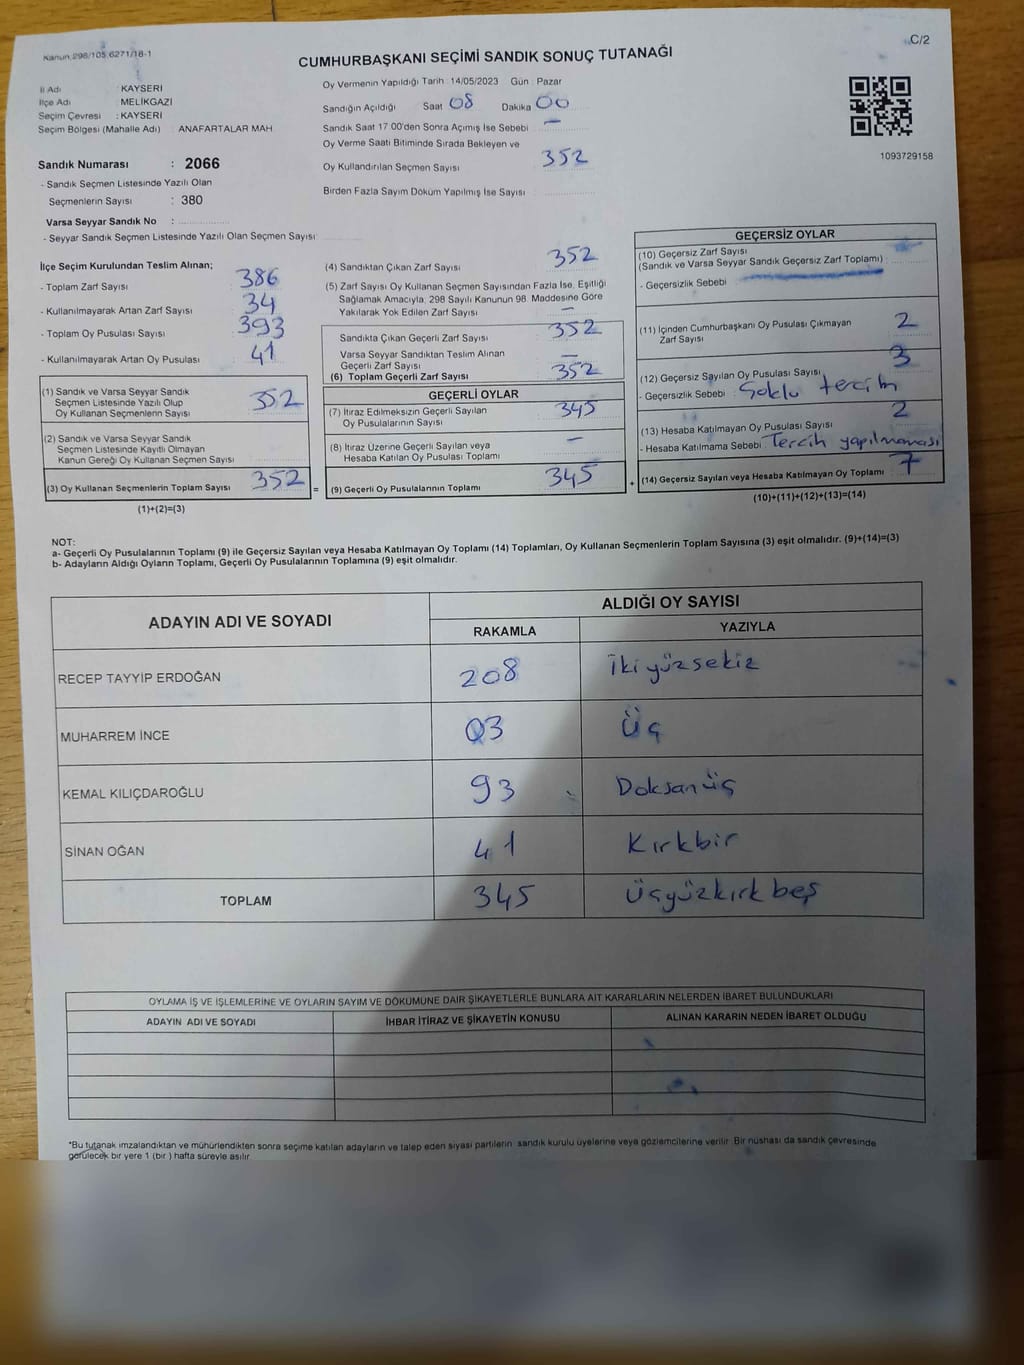 Kanun 298/105 6271/18-1
C/2
CUMHURBAŞKANI SEÇİMİ SANDIK SONUÇ TUTANAĞI
İl Adı KAYSERİ
İlçe Adı MELİKGAZİ
Seçim Çevresi : KAYSERİ
Seçim Bölgesi (Mahalle Adı) : ANAFARTALAR MAH
Sandık Numarası : 2066
- Sandık Seçmen Listesinde Yazılı Olan
Seçmenlerin Sayısı : 380
Varsa Seyyar Sandık No :
- Seyyar Sandık Seçmen Listesinde Yazılı Olan Seçmen Sayısı:
Oy Vermenin Yapıldığı Tarih 14/05/2023 Gün Pazar
Sandığın Açıldığı Saat 08 Dakika 00
Sandık Saat 17 00'den Sonra Açımış İse Sebebi —
Oy Verme Saati Bitiminde Sırada Bekleyen ve
Oy Kullandırılan Seçmen Sayısı 352
Birden Fazla Sayım Döküm Yapılmış İse Sayısı
1093729158
İlçe Seçim Kurulundan Teslim Alınan;
- Toplam Zarf Sayısı 386
- Kullanılmayarak Artan Zarf Sayısı 34
- Toplam Oy Pusulası Sayısı 393
- Kullanılmayarak Artan Oy Pusulası 41
(1) Sandık ve Varsa Seyyar Sandık
Seçmen Listesinde Yazılı Olup
Oy Kullanan Seçmenlerin Sayısı 352
(2) Sandık ve Varsa Seyyar Sandık
Seçmen Listesinde Kayıtlı Olmayan
Kanun Gereği Oy Kullanan Seçmen Sayısı
(3) Oy Kullanan Seçmenlerin Toplam Sayısı 352
(1)+(2)=(3)
=
(4) Sandıktan Çıkan Zarf Sayısı 352
(5) Zarf Sayısı Oy Kullanan Seçmen Sayısından Fazla İse, Eşitliği
Sağlamak Amacıyla, 298 Sayılı Kanunun 98. Maddesine Göre
Yakılarak Yok Edilen Zarf Sayısı —
Sandıkta Çıkan Geçerli Zarf Sayısı 352
Varsa Seyyar Sandıktan Teslim Alınan
Geçerli Zarf Sayısı —
(6) Toplam Geçerli Zarf Sayısı 352
GEÇERLİ OYLAR
(7) İtiraz Edilmeksizin Geçerli Sayılan
Oy Pusulalarının Sayısı 345
(8) İtiraz Üzerine Geçerli Sayılan veya
Hesaba Katılan Oy Pusulası Toplamı —
(9) Geçerli Oy Pusulalarının Toplamı 345
+
GEÇERSİZ OYLAR
(10) Geçersiz Zarf Sayısı
(Sandık ve Varsa Seyyar Sandık Geçersiz Zarf Toplamı)
- Geçersizlik Sebebi
(11) İçinden Cumhurbaşkanı Oy Pusulası Çıkmayan
Zarf Sayısı 2
(12) Geçersiz Sayılan Oy Pusulası Sayısı 3
- Geçersizlik Sebebi tercih
(13) Hesaba Katılmayan Oy Pusulası Sayısı 2
- Hesaba Katılmama Sebebi Tercih yapılmaması
(14) Geçersiz Sayılan veya Hesaba Katılmayan Oy Toplamı 7
(10)+(11)+(12)+(13)=(14)
NOT:
a- Geçerli Oy Pusulalarının Toplamı (9) ile Geçersiz Sayılan veya Hesaba Katılmayan Oy Toplamı (14) Toplamları, Oy Kullanan Seçmenlerin Toplam Sayısına (3) eşit olmalıdır. (9)+(14)=(3)
b- Adayların Aldığı Oyların Toplamı, Geçerli Oy Pusulalarının Toplamına (9) eşit olmalıdır.
ADAYIN ADI VE SOYADI
ALDIĞI OY SAYISI
RAKAMLA YAZIYLA
RECEP TAYYİP ERDOĞAN 208 İkiyüzsekiz
MUHARREM İNCE 03 Üç
KEMAL KILIÇDAROĞLU 93 Doksanüç
SİNAN OĞAN 41 Kırkbir
TOPLAM 345 Üçyüzkırkbeş
OYLAMA İŞ VE İŞLEMLERİNE VE OYLARIN SAYIM VE DÖKÜMÜNE DAİR ŞİKAYETLERLE BUNLARA AİT KARARLARIN NELERDEN İBARET BULUNDUKLARI
ADAYIN ADI VE SOYADI İHBAR İTİRAZ VE ŞİKAYETİN KONUSU ALINAN KARARIN NEDEN İBARET OLDUĞU
*Bu tutanak imzalandıktan ve mühürlendikten sonra seçime katılan adayların ve talep eden siyasi partilerin sandık kurulu üyelerine veya gözlemcilerine verilir Bir nüshası da sandık çevresinde
görülecek bir yere 1 (bir) hafta süreyle asılır